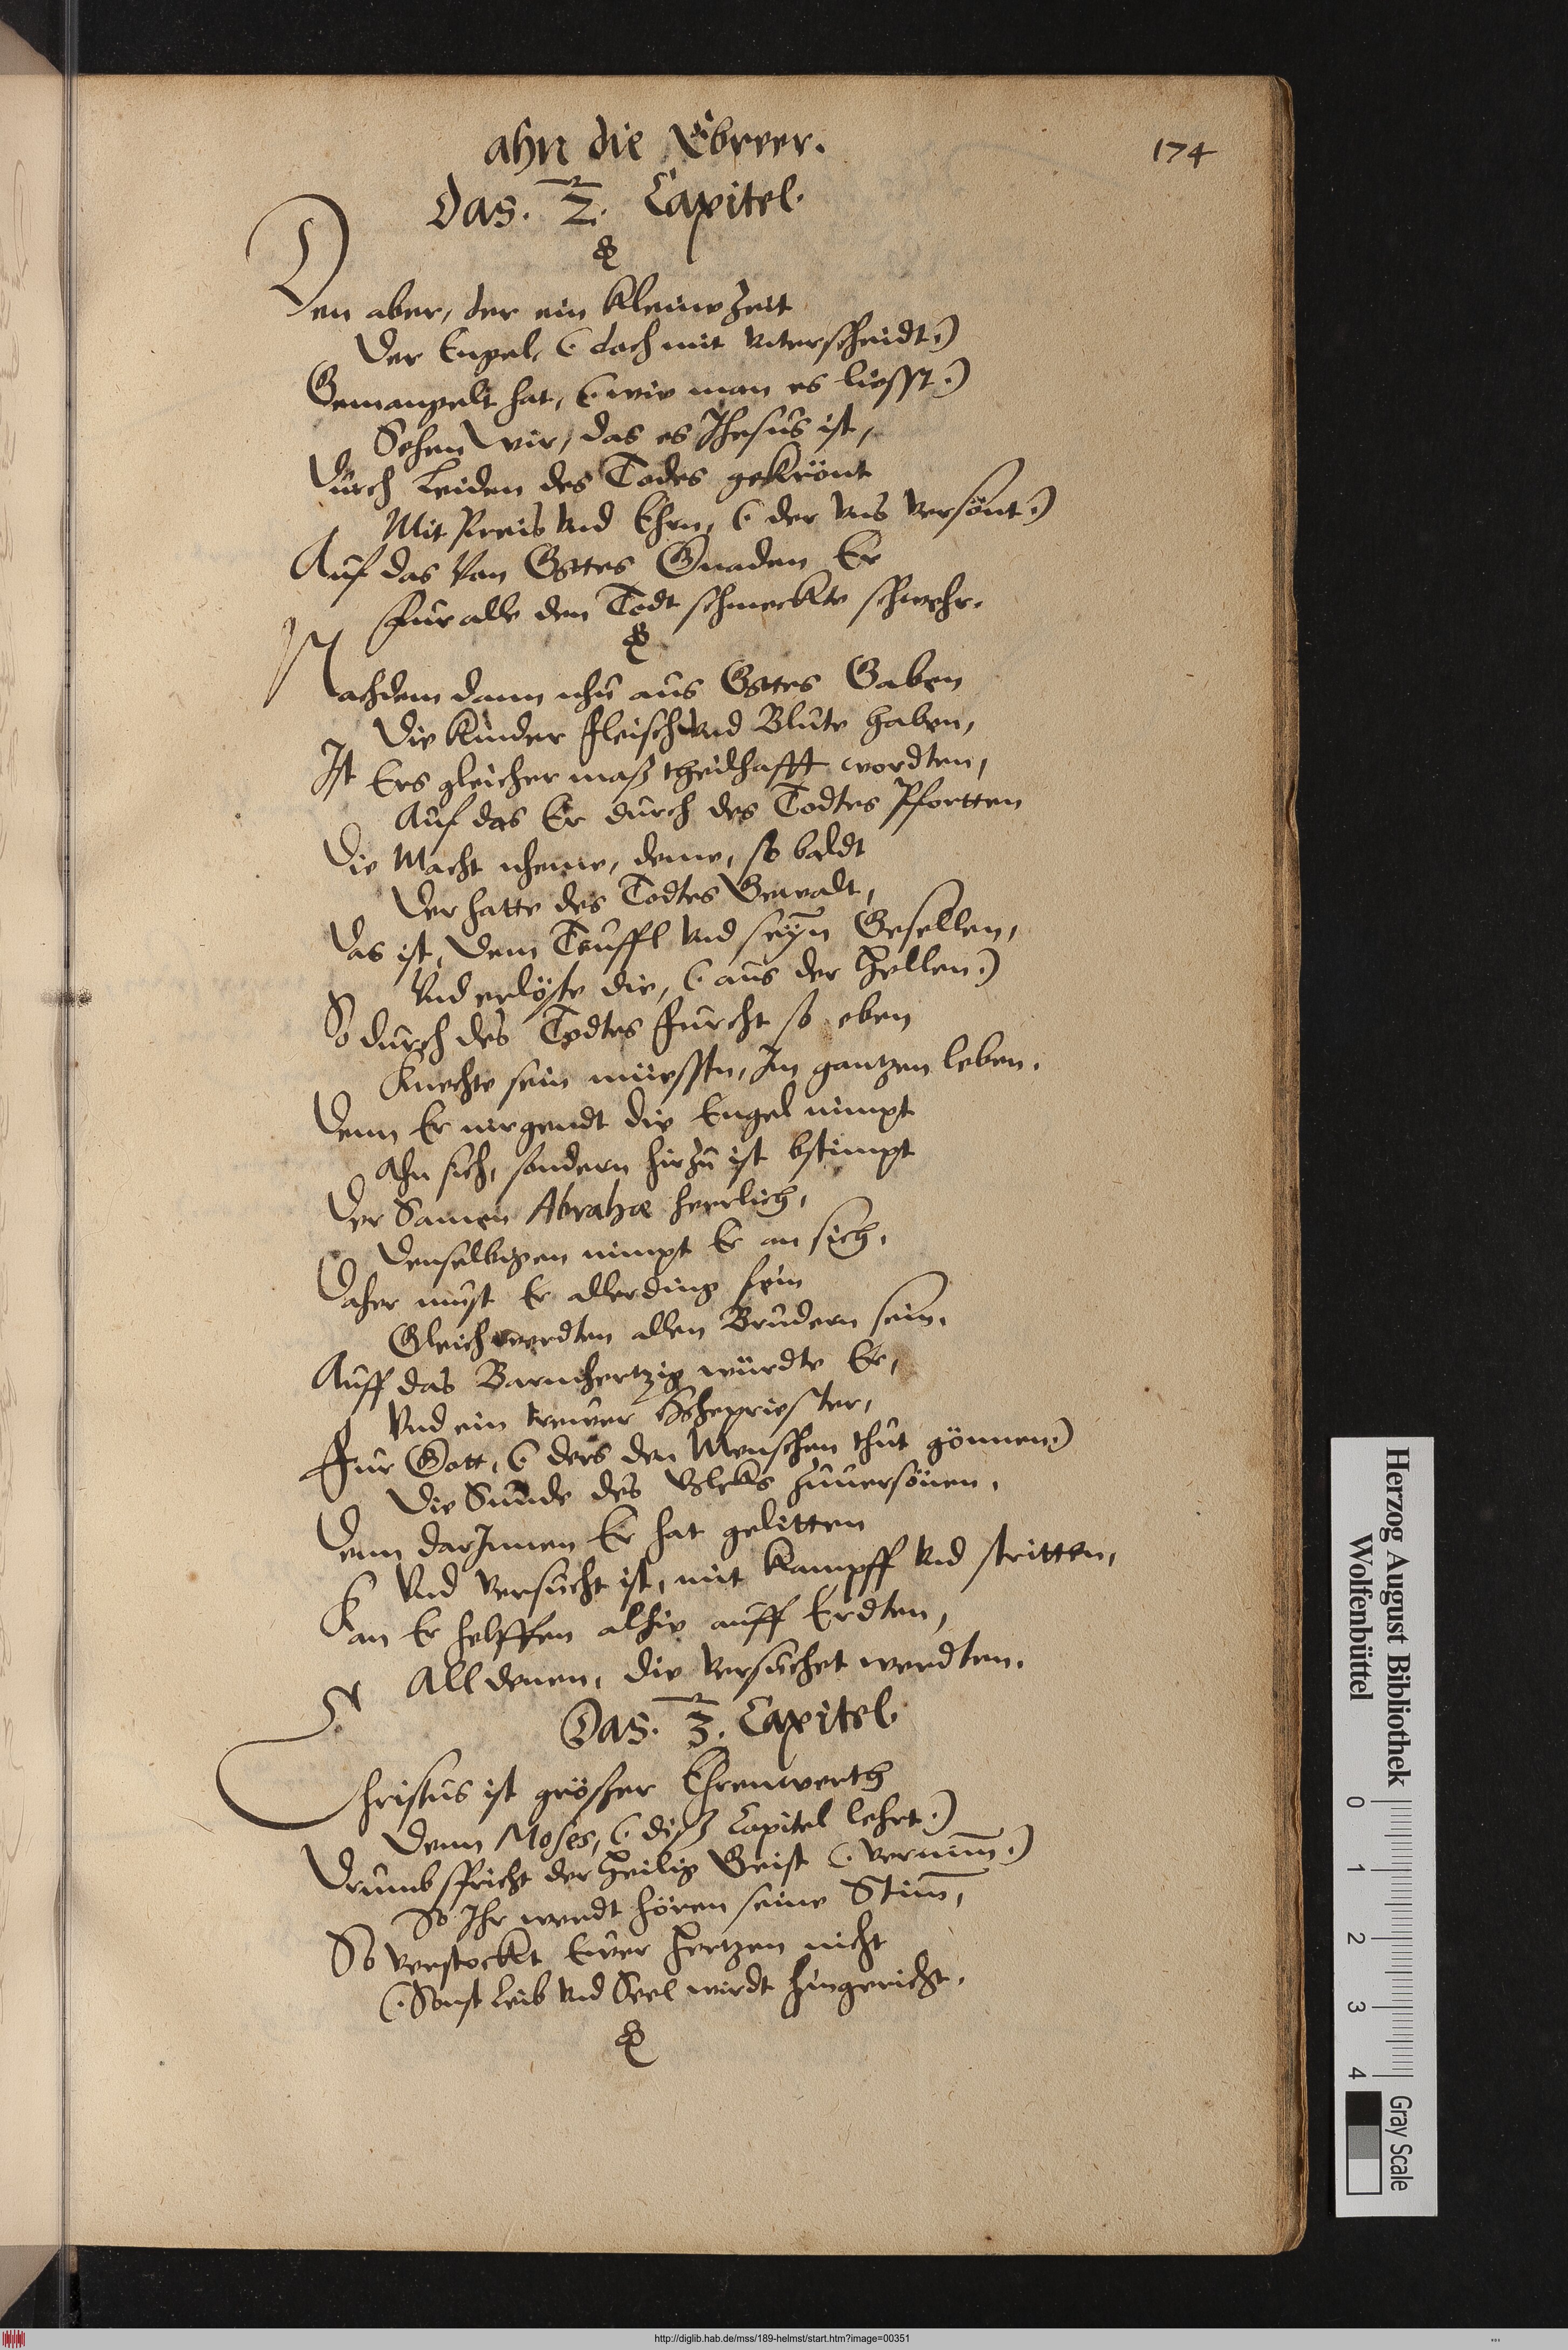 ahn die Ebreer.
174
Das. 2. Capitel.
Den aber, der ein kleine Zeit
Der Engel, (doch mit unterscheidt)
Gemangelt hat, (wie man es liesst.)
Sehen wir, das es Jhesus ist,
Durch Leiden des Todes gekrönt
Mit Preis und Ehrn, (der uns versönt)
Auf das Von Gottes Gnaden Er
Fur alle den Todt schmeckte schwehr.
Nachdem dann nhu aus Gottes Gaben
Die Kinder Fleisch und Blute haben,
Ist Ers gleicher maß theilhafft wordten,
Auf das Er durch des Todtes Pfortten
Die Macht nheme, deme, so baldt
Der hatte des Todtes Gewalt,
Das ist, dem Teuffl und seyn̄ Gesellen,
Und erlöste die, (aus der Hellen)
So durch des Todtes Furcht so eben
Knechte sein müessten, Im gantzen leben.
Denn Er nirgendt die Engel nimpt
Ahn sich, sondern hirzu ist bstimpt
Der Samen Abrahæ herrlich,
Denselbigen nimpt Er an sich.
Daher must Er allerding fein
Gleich werdten allen Brudern sein.
Auff das Barmhertzig würdte Er,
Und ein trewer Hohepriester,
Fur Gott, (ders den Menschen thut gönnen)
Die Sunde des Volcks zuversönen.
Denn darJnnen Er hat gelitten
Und versucht ist, mit Kampff und stritten,
Kan Er helffen alhie auff Erdten,
All denen, die versuchet werdten.
Das. 3. Capitel.
Christus ist größer Ehrenwerth
Denn Moses, (diß Capitel lehrt.)
Drumb spricht der Heilig Geist (vernim̄.)
So Ihr werdt hören seine Stim̄,
So verstockt Ewer Hertzen nicht
(Sonst Leib und Seel wirdt hingericht.
Herzog August Bibliothek
Wolfenbüttel
0 1 2 3 4
Gray Scale
http://diglib.hab.de/mss/189-helmst/start.htm?image=00351